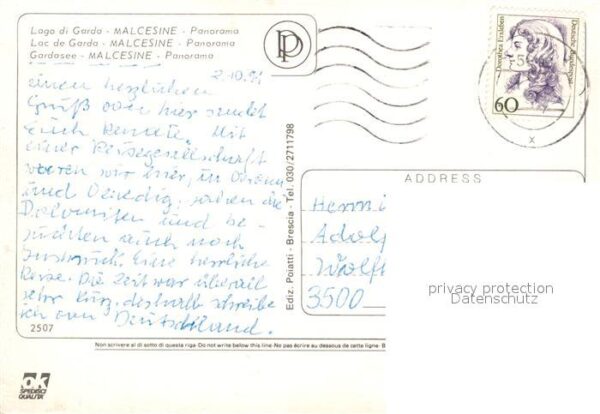 Lago di Garda - MALCESINE - Panorama
Lac de Garda - MALCESINE - Panorama
Gardasee - MALCESINE - Panorama
2.10.91
einen herzlichen
Gruß von hier sendet
Euch Renate. Mit
einer Reisegesellschaft
waren wir hier, in Verona
und Venedig, sahen die
Dolomiten und be-
suchten auch noch
Innsbruck. Eine herrliche
Reise. Die Zeit war überall
sehr kurz, deshalb schreibe
ich von Deutschland.
2507
Ediz. Poiatti - Brescia - Tel. 030/2711798
Dorothea Erxleben
Deutsche Bundespost
60
ADDRESS
Adolf
Wolf
3500
privacy protection
Datenschutz
Non scrivere al di sotto di questa riga - Do not write below this line - Ne pas écrire au dessous de cette ligne -
OK
SPEDISCI
QUALITÀ